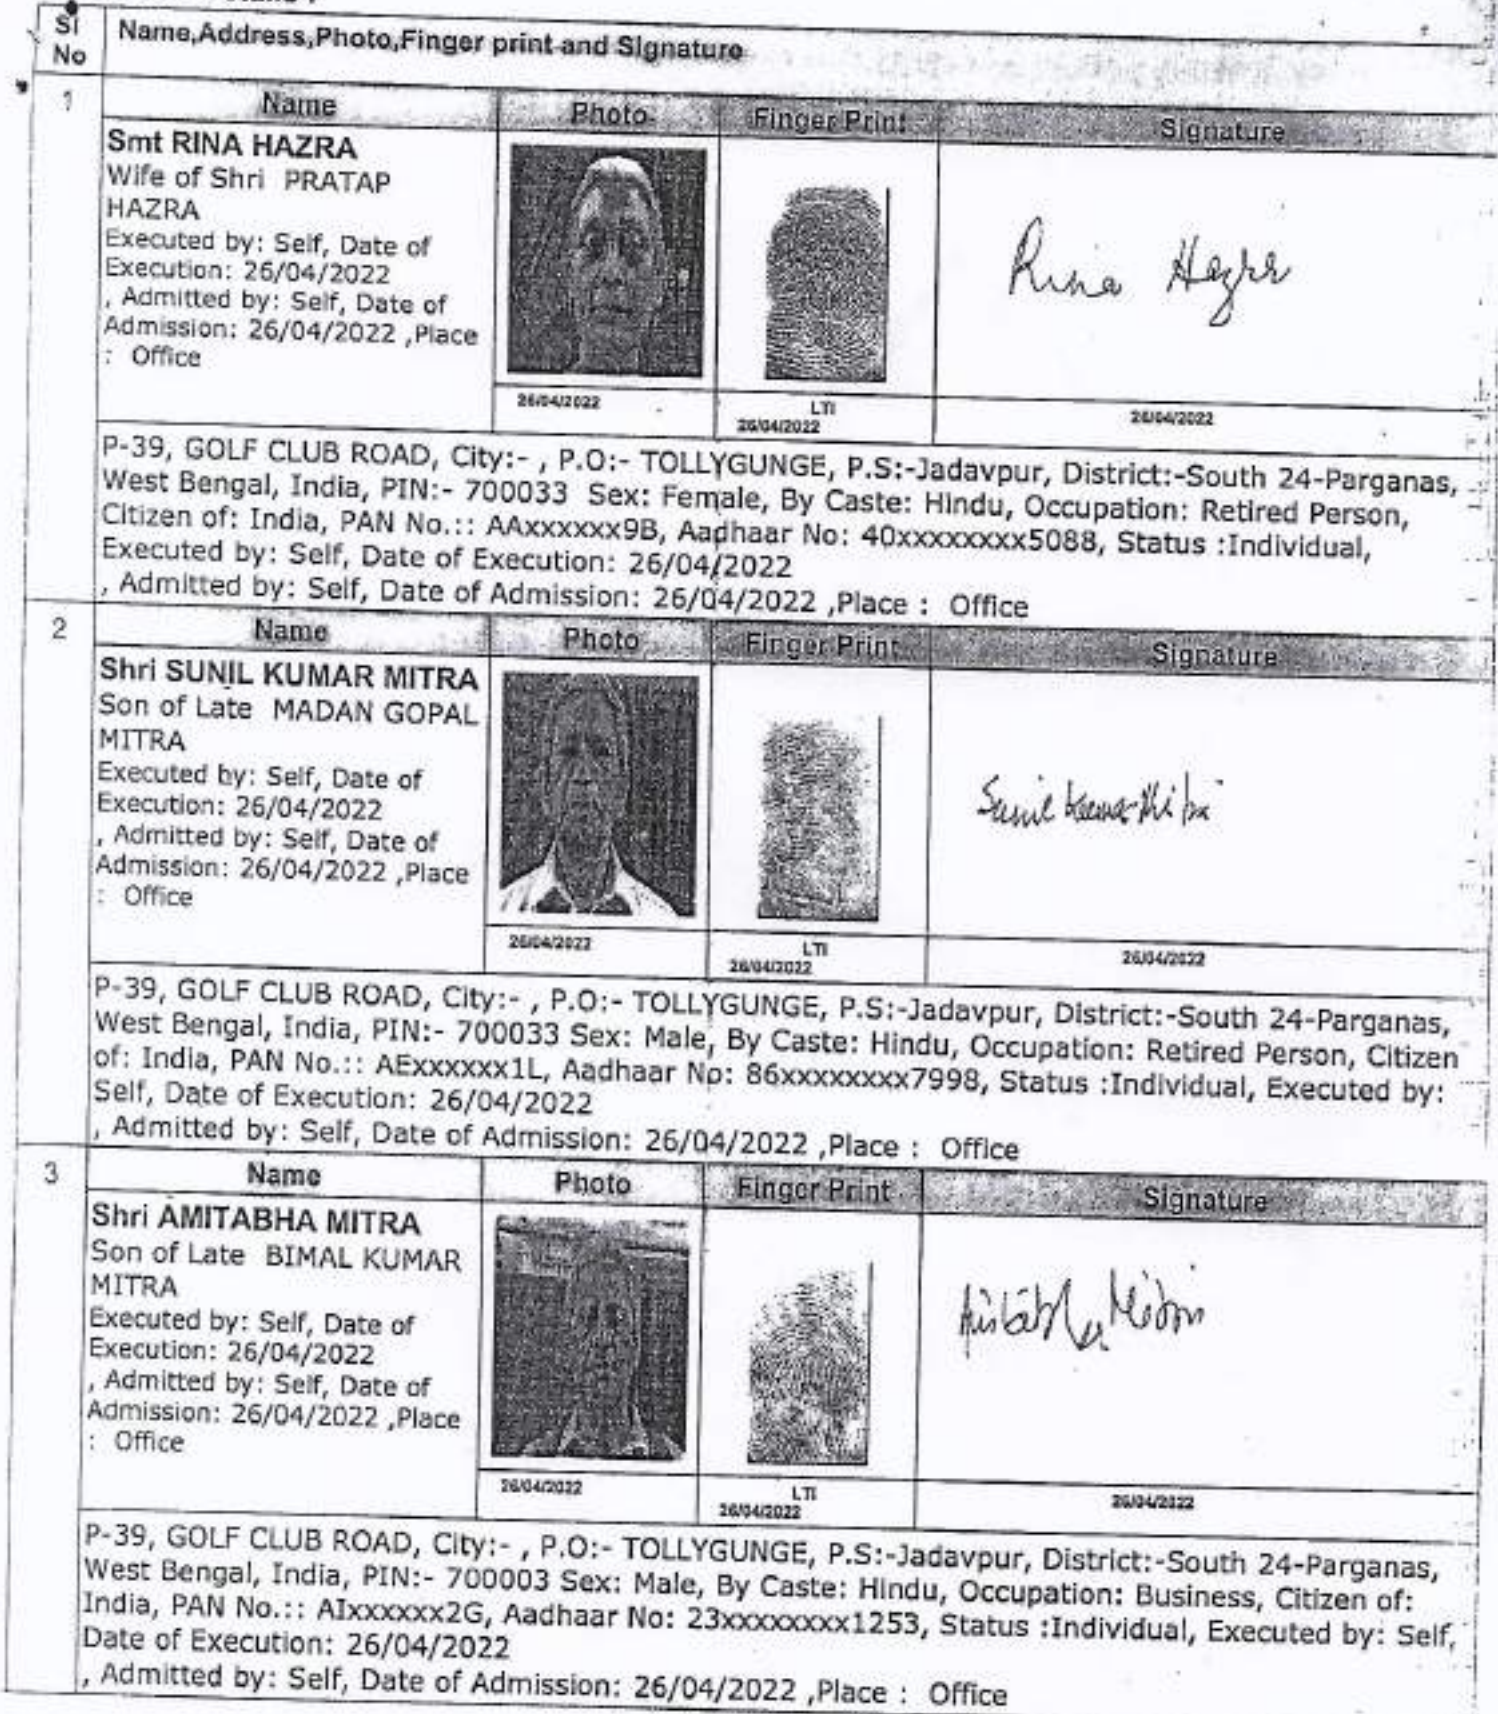 Sl No
Name,Address,Photo,Finger print and Signature
1
Name
Photo
Finger Print
Signature
Smt RINA HAZRA
Wife of Shri PRATAP
HAZRA
Executed by: Self, Date of
Execution: 26/04/2022
, Admitted by: Self, Date of
Admission: 26/04/2022 ,Place
: Office
Rina Hazra
26/04/2022
LTI
26/04/2022
26/04/2022
P-39, GOLF CLUB ROAD, City:- , P.O:- TOLLYGUNGE, P.S:-Jadavpur, District:-South 24-Parganas,
West Bengal, India, PIN:- 700033 Sex: Female, By Caste: Hindu, Occupation: Retired Person,
Citizen of: India, PAN No.:: AAxxxxxx9B, Aadhaar No: 40xxxxxxxx5088, Status :Individual,
Executed by: Self, Date of Execution: 26/04/2022
, Admitted by: Self, Date of Admission: 26/04/2022 ,Place : Office
2
Name
Photo
Finger Print
Signature
Shri SUNIL KUMAR MITRA
Son of Late MADAN GOPAL
MITRA
Executed by: Self, Date of
Execution: 26/04/2022
, Admitted by: Self, Date of
Admission: 26/04/2022 ,Place
: Office
Sunil Kumar Mitra
26/04/2022
LTI
26/04/2022
26/04/2022
P-39, GOLF CLUB ROAD, City:- , P.O:- TOLLYGUNGE, P.S:-Jadavpur, District:-South 24-Parganas,
West Bengal, India, PIN:- 700033 Sex: Male, By Caste: Hindu, Occupation: Retired Person, Citizen
of: India, PAN No.:: AExxxxxx1L, Aadhaar No: 86xxxxxxxx7998, Status :Individual, Executed by:
Self, Date of Execution: 26/04/2022
, Admitted by: Self, Date of Admission: 26/04/2022 ,Place : Office
3
Name
Photo
Finger Print
Signature
Shri AMITABHA MITRA
Son of Late BIMAL KUMAR
MITRA
Executed by: Self, Date of
Execution: 26/04/2022
, Admitted by: Self, Date of
Admission: 26/04/2022 ,Place
: Office
Amitabha Mitra
26/04/2022
LTI
26/04/2022
26/04/2022
P-39, GOLF CLUB ROAD, City:- , P.O:- TOLLYGUNGE, P.S:-Jadavpur, District:-South 24-Parganas,
West Bengal, India, PIN:- 700003 Sex: Male, By Caste: Hindu, Occupation: Business, Citizen of:
India, PAN No.:: AIxxxxxx2G, Aadhaar No: 23xxxxxxxx1253, Status :Individual, Executed by: Self,
Date of Execution: 26/04/2022
, Admitted by: Self, Date of Admission: 26/04/2022 ,Place : Office